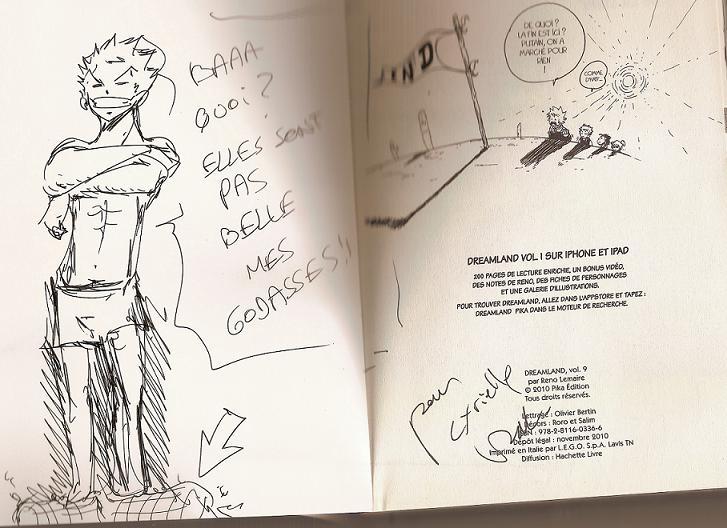 BAAA
QUOI ?
ELLES SONT
PAS
BELLE
MES
GODASSES !!
DE QUOI ?
LA FIN EST ICI ?
PUTAIN, ON A
MARCHÉ POUR
RIEN
!
COMME
D'HAB'...
DREAMLAND VOL. 1 SUR IPHONE ET IPAD
200 PAGES DE LECTURE ENRICHIE, UN BONUS VIDÉO,
DES NOTES DE RENO, DES FICHES DE PERSONNAGES
ET UNE GALERIE D'ILLUSTRATIONS.
POUR TROUVER DREAMLAND, ALLEZ DANS L'APPSTORE ET TAPEZ :
DREAMLAND PIKA DANS LE MOTEUR DE RECHERCHE.
DREAMLAND, vol. 9
par Reno Lemaire
© 2010 Pika Édition
Tous droits réservés.
pour
Cyrielle
Lettrage : Olivier Bertin
Décors : Roro et Salim
: 978-2-8116-0336-6
Dépôt légal : novembre 2010
Imprimé en Italie par L.E.G.O. S.p.A. Lavis TN
Diffusion : Hachette Livre